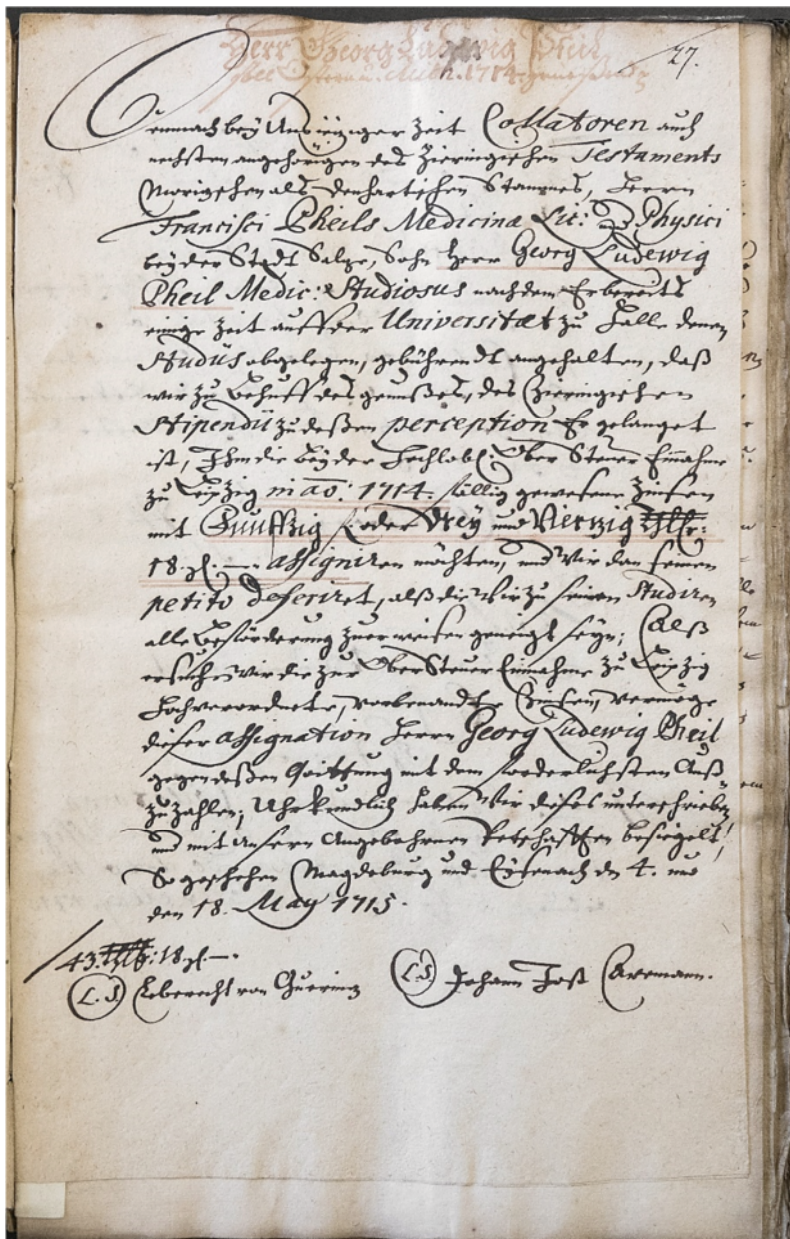 Herr Georg Ludwig Pheil
1714
27.
Demnach bey Uns itziger Zeit Collatoren auch
nechsten angehörigen des Zieringischen Testaments
Moringischen als Denhartischen Stammes, Herrn
Francisci Pheils Medicinæ Lic: Physici
bey der Stadt Saltze, Sohn Herr Georg Ludewig
Pheil Medic: Studiosus nachdem Er bereits
einige Zeit auff der Universitæt zu Halle denen
Studiis obgelegen, gebührendt angehalten, daß
wir zu Behuff des genußes, des Zieringischen
Stipendii zu deßen perception Er gelanget
ist, Ihm die bey der Hochlobl: Ober Steuer Einnahme
zu Leipzig in ao: 1714. fällig gewesene Zinsen
mit Funffzig f. oder Drey und Viertzig Thlr:
18. gl. –. assigniren möchten, und Wir dan seinem
petito deferiret, alß die Wir zu seinen Studiren
alle Beförderung zuerweisen geneigt seyn; Alß
ersuchen Wir die zur Ober Steuer Einnahme zu Leipzig
Hochverordnete, vorbenandte Zinsen, vermöge
dieser assignation Herrn Georg Ludewig Pheil
gegen deßen Quittung mit dem forderlichsten Auß-
zuzahlen; Uhrkundlich haben Wir dieses unterschrieben
und mit unsern Angebohrnen Petschafften besiegelt!
So geschehen Magdeburg und Eysenach den 4. und
den 18. May 1715.
43. Thlr: 18 gl. –.
(L.S) Leberecht von Guericke (L.S) Johann Jost